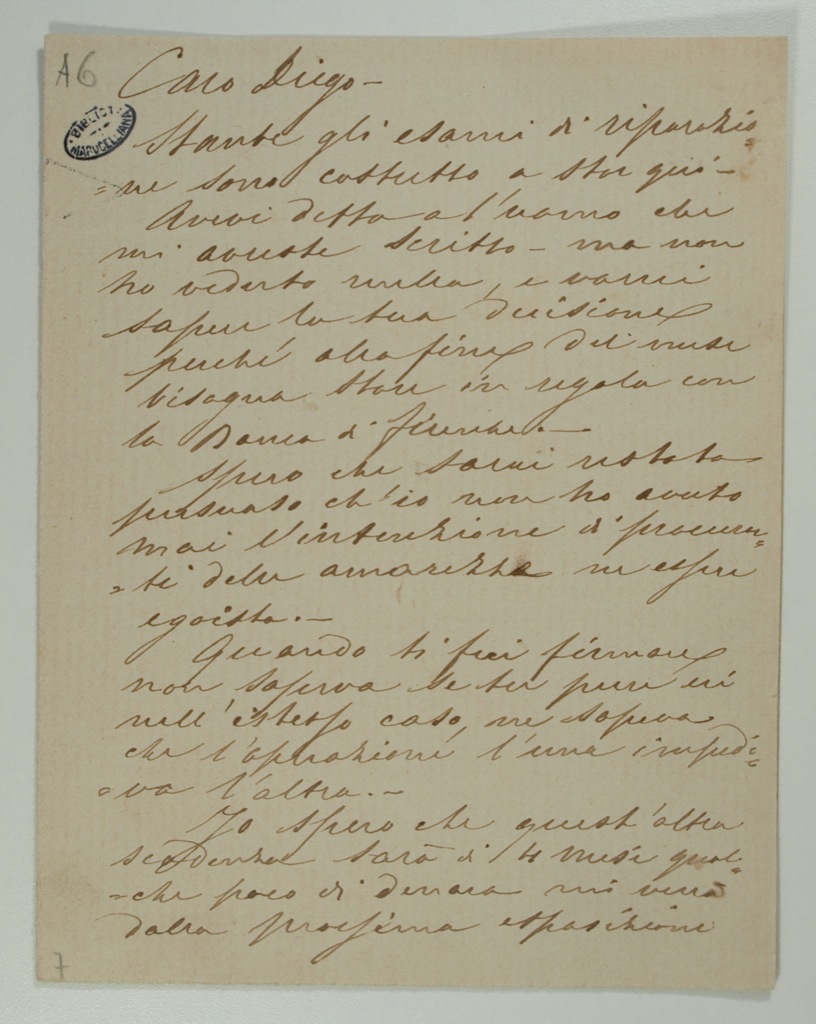 A6
Caro Diego -
BIBLIOT.
MARUCELLIANA
Stante gli esami di riparazio=
=ne sono costretto a star quì -
Avevi detto a l'uomo che
mi avreste scritto - ma non
ho veduto nulla, e vorrei
sapere la tua decisione
perché alla fine del mese
bisogna stare in regola con
la Banca di Firenze. -
Spero che sarai restato
persuaso ch'io non ho avuto
mai l'intenzione di procurar=
=ti delle amarezze ne essere
egoista. -
Quando ti feci firmare
non sapeva se tu pure eri
nell'istesso caso, ne sapeva
che l'operazione l'una impedi=
=va l'altra. -
Io spero che quest'altra
scadenza sarà di 4 mesi qual=
=che poco di denaro mi verrà
dalla prossima esposizione
7